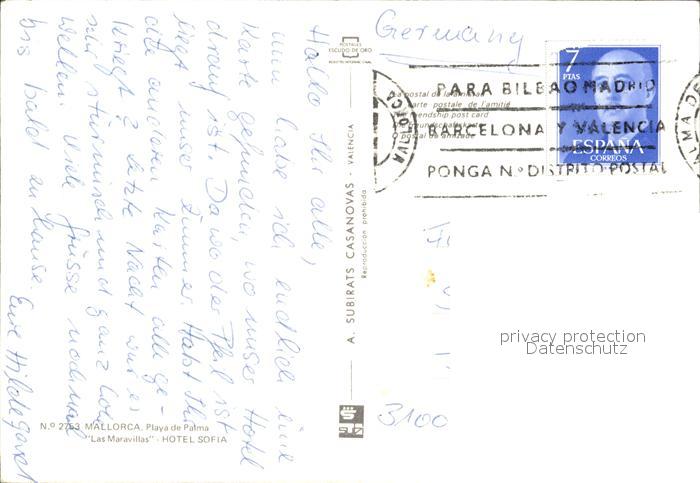 Hallo Ihr alle,
nun habe ich endlich eine
Karte gefunden, wo unser Hotel
drauf ist. Da wo der Pfeil ist
liegt unser Zimmer. Habt Ihr
die ersten Karten alle ge-
kriegt? Letzte Nacht war es
sehr stürmisch und ganz hohe
Wellen. Viele Grüsse nochmal
bis bald zu Hause.
Eure Hildegard
Nº 2753 MALLORCA. Playa de Palma
"Las Maravillas" - HOTEL SOFIA
POSTALES
ESCUDO DE ORO
A. SUBIRATS CASANOVAS - VALENCIA
Reproducción prohibida
Germany
postal de la
carte postale de l'amitié
friendship post card
PARA BILBAO MADRID
BARCELONA Y VALENCIA
PONGA N.º DISTRITO POSTAL
7
PTAS
ESPAÑA
CORREOS
privacy protection
Datenschutz
3100